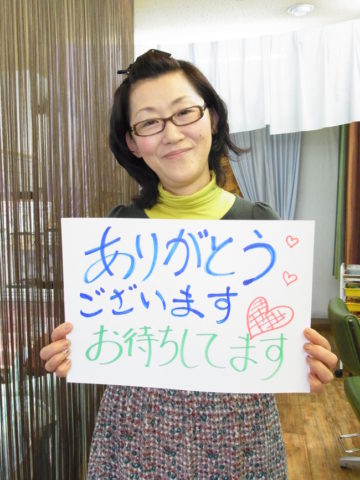 ありがとう
ございます
お待ちしてます